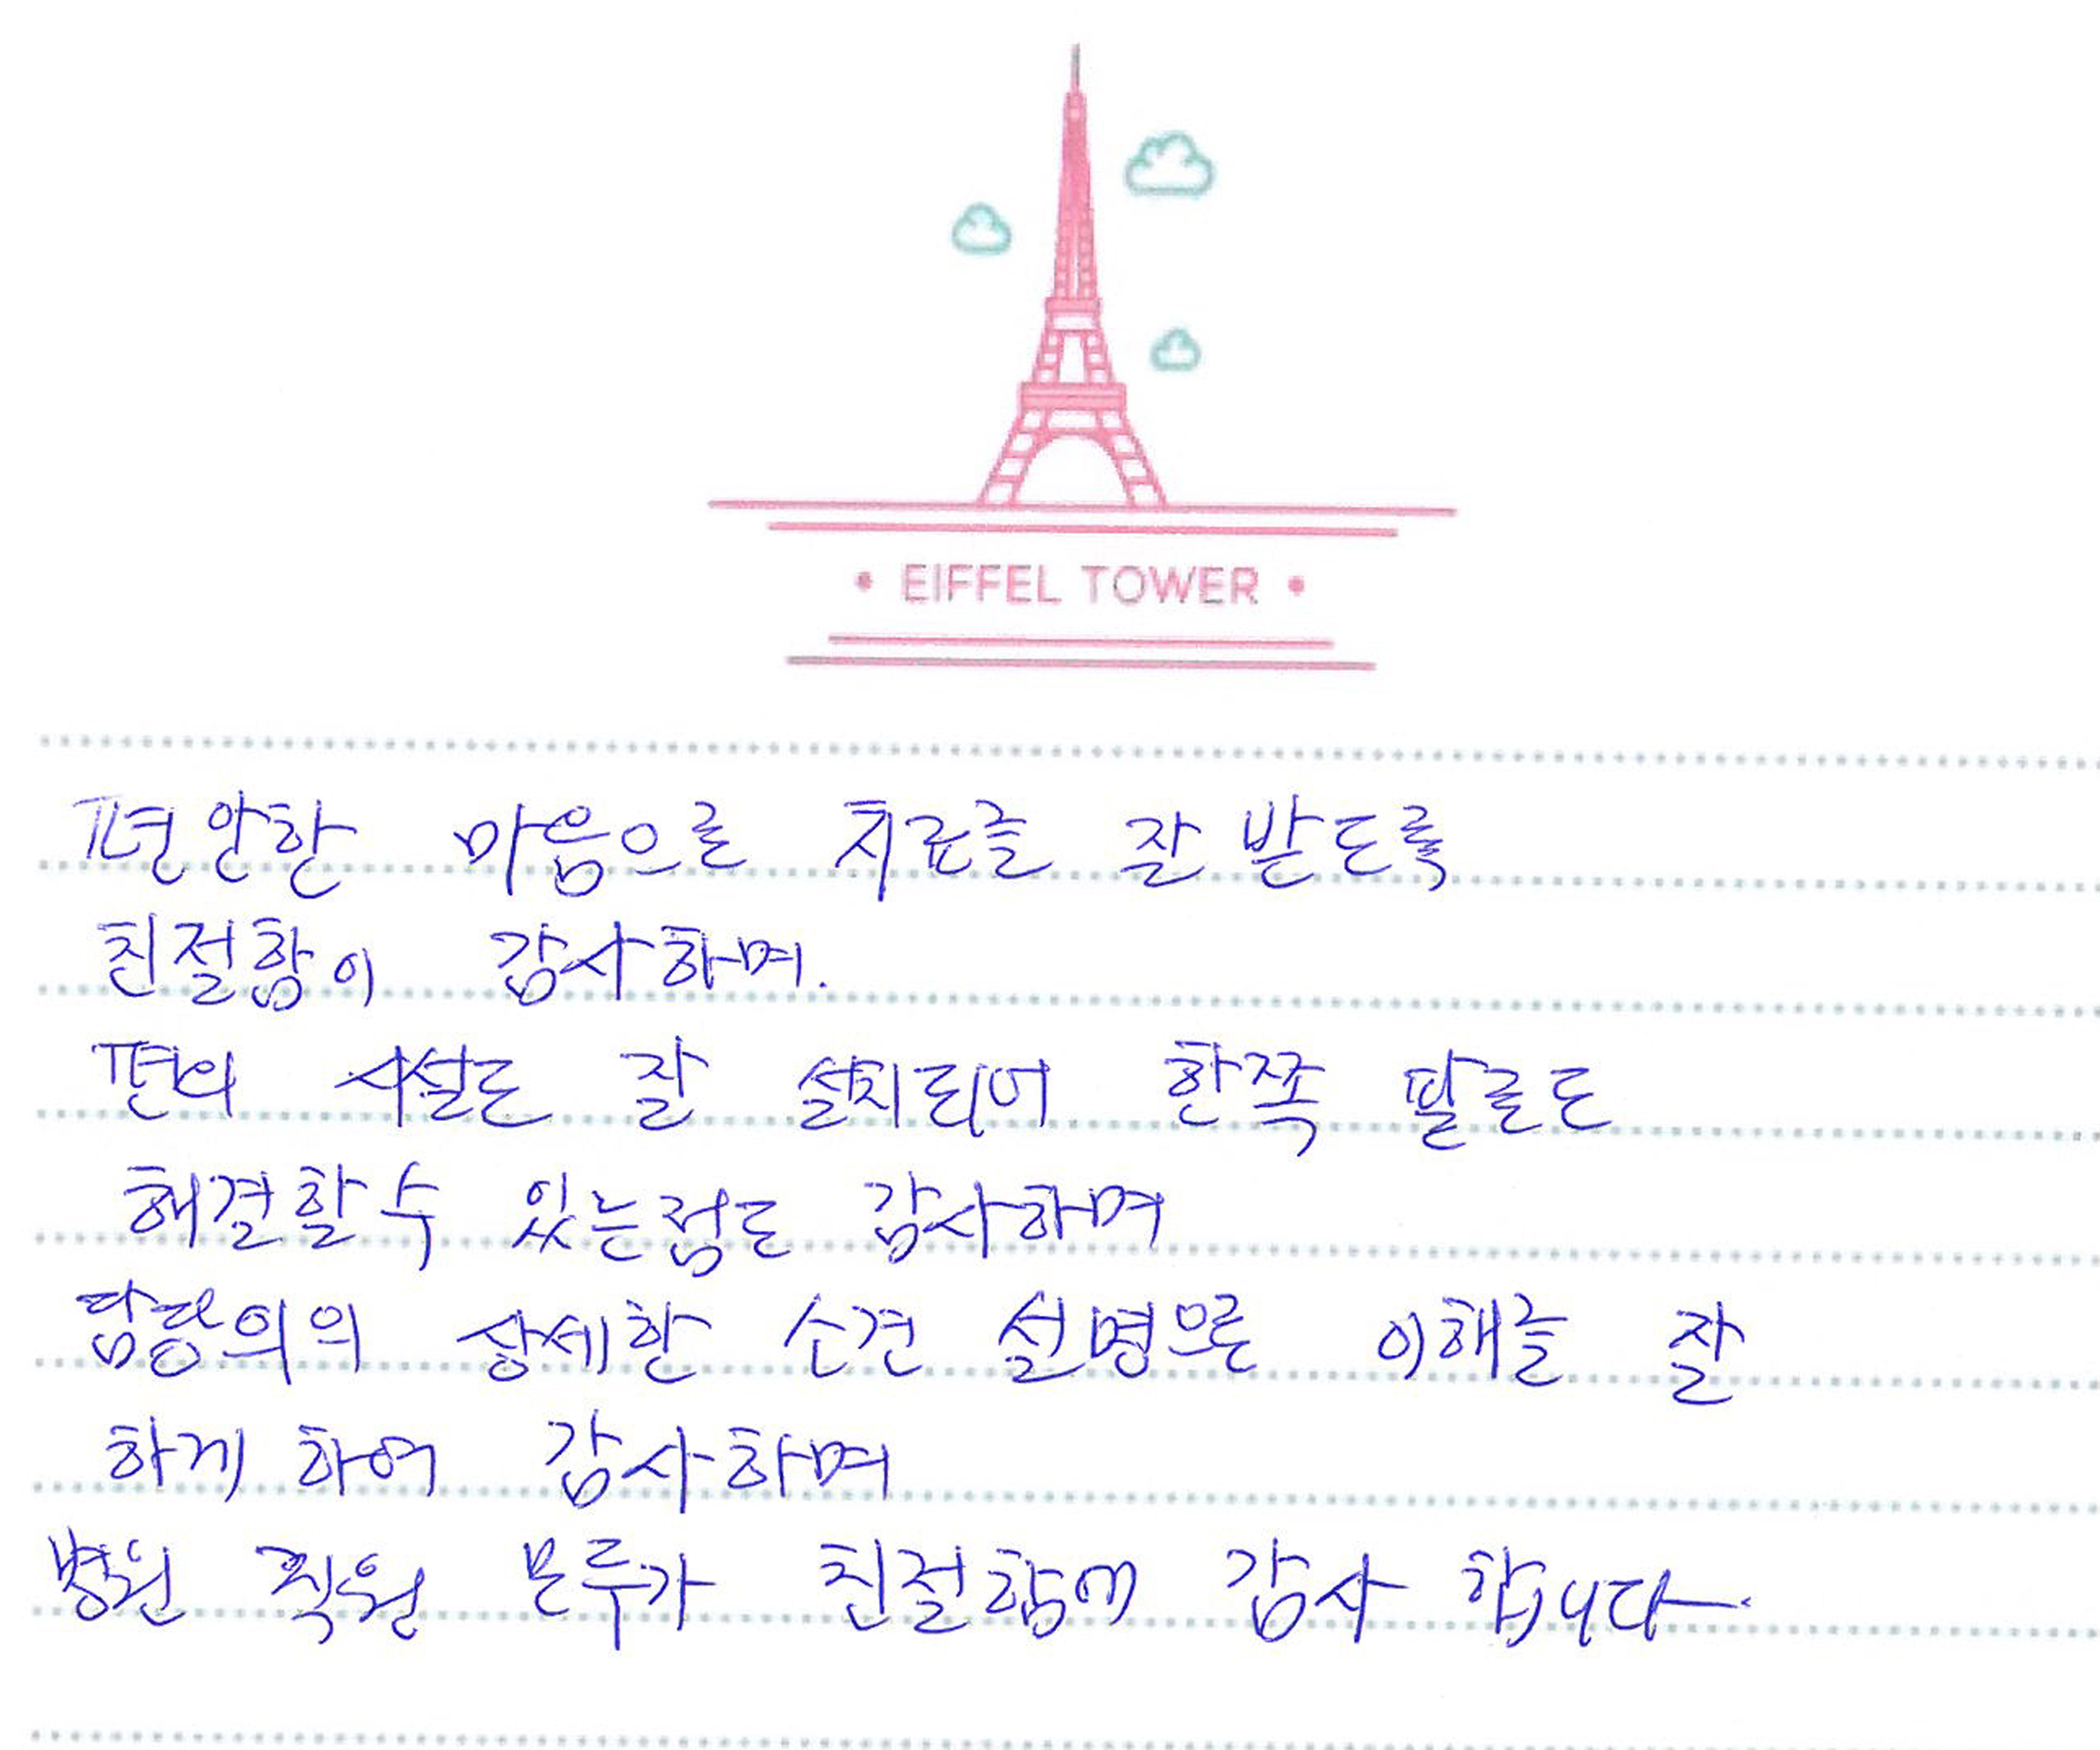 • EIFFEL TOWER •
편안한 마음으로 치료를 잘 받도록
친절함이 감사하며.
편의 시설도 잘 설치되어 한쪽 팔로도
해결할 수 있는점도 감사하며
담당의의 상세한 소견 설명으로 이해를 잘
하게 하여 감사하며
병원 직원 모두가 친절함에 감사 합니다.